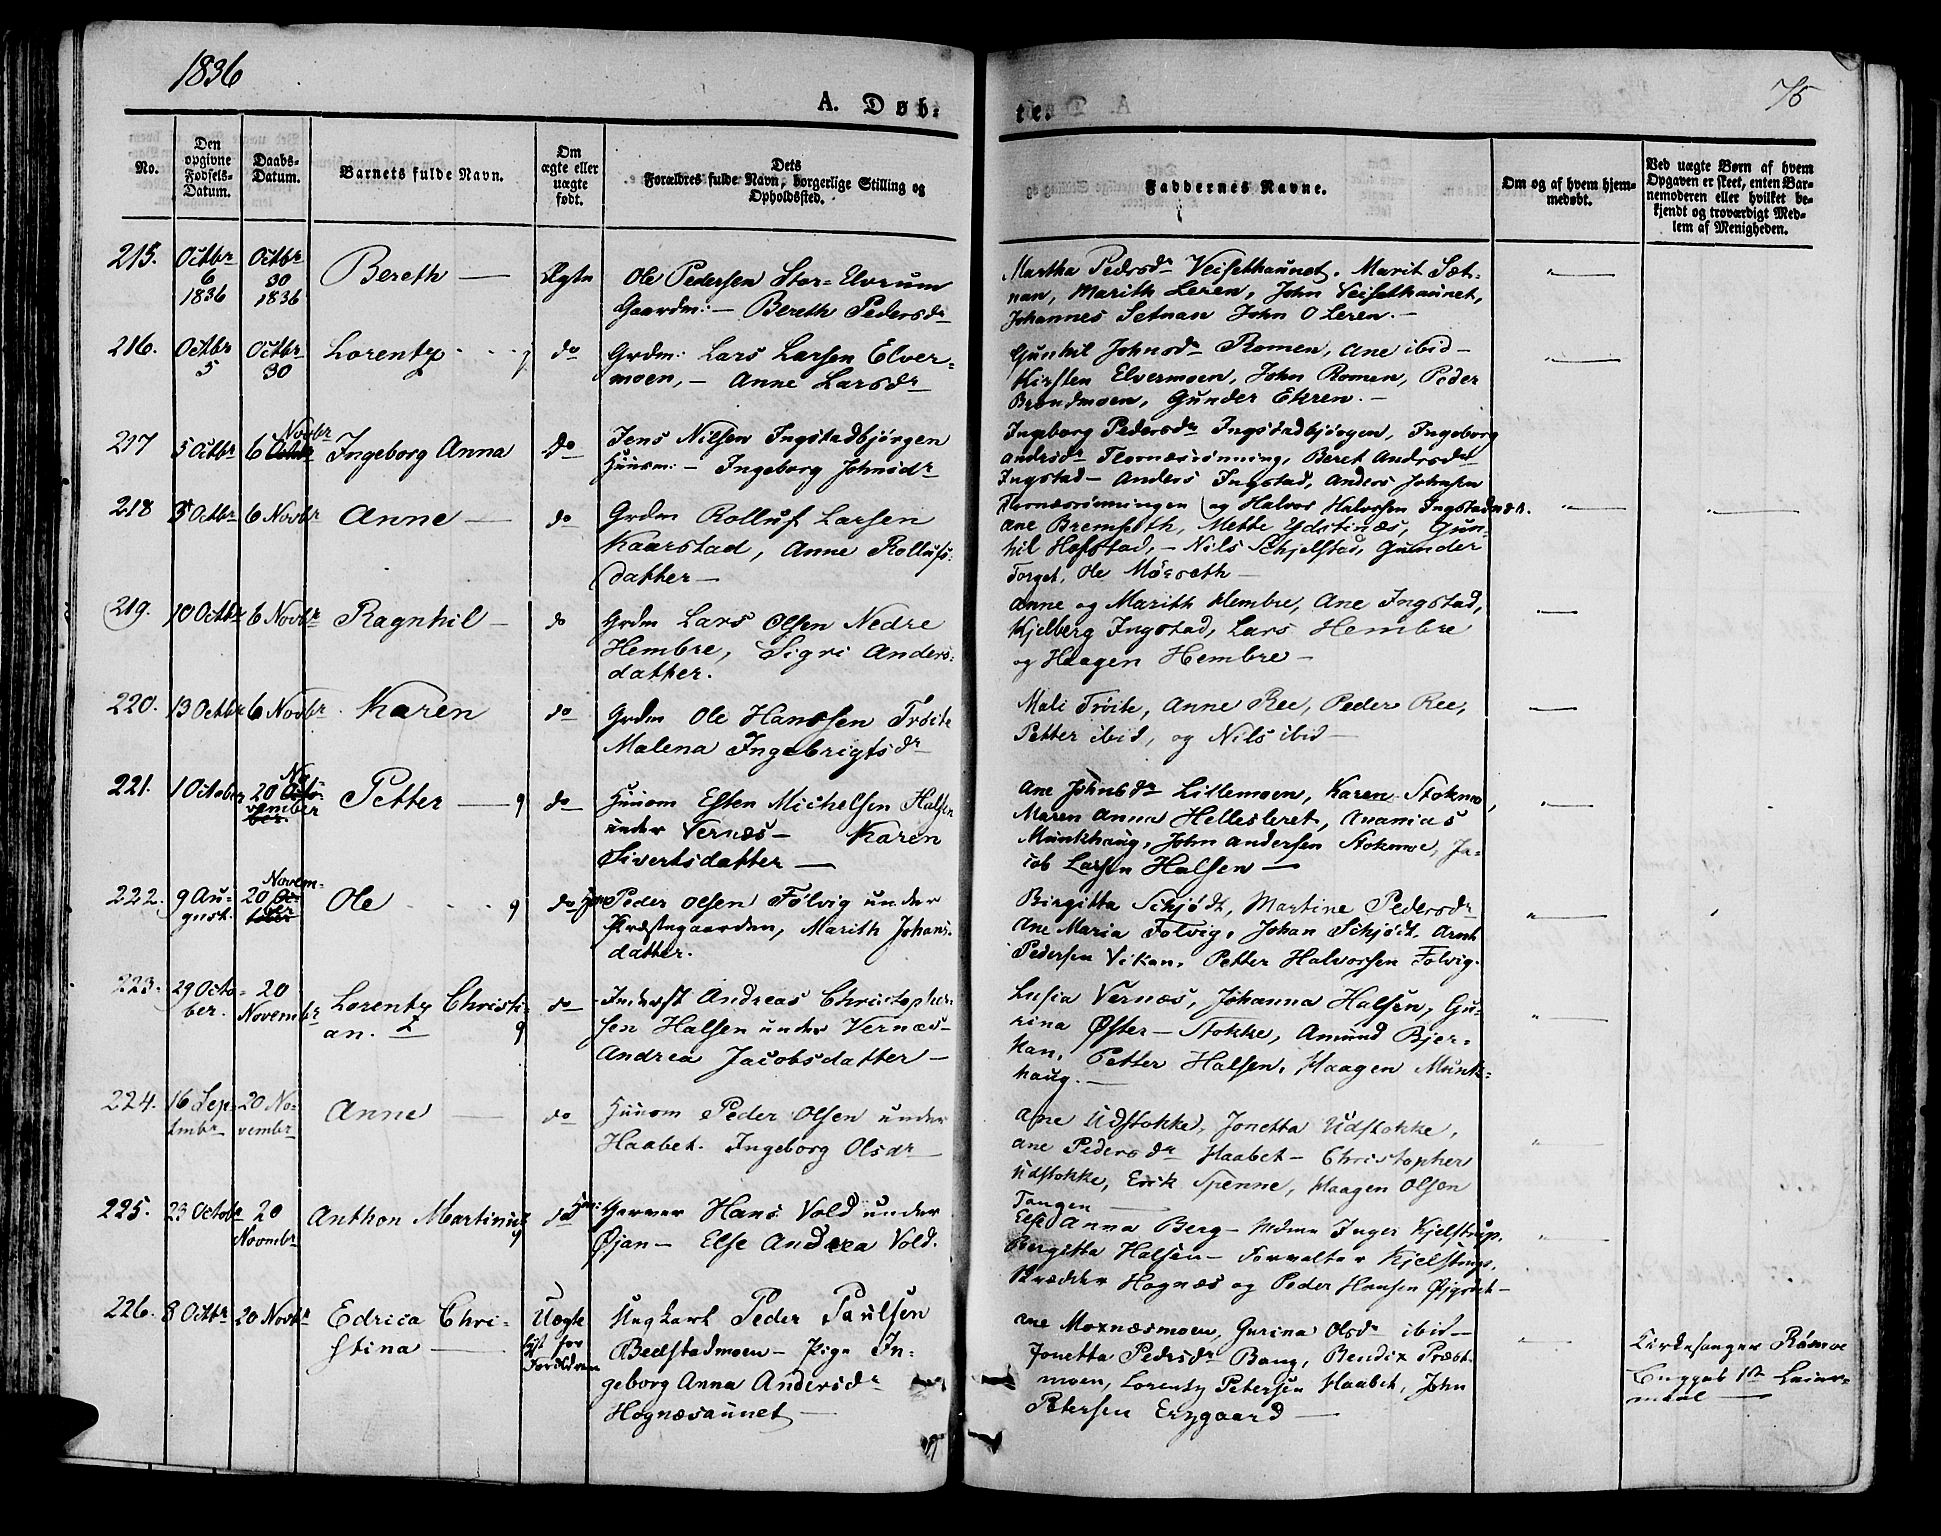 1836
75
A. Døb-
tes
No.
Den opgivne Fødsels-Datum.
Daabs-Datum.
Barnets fulde Navn.
Om ægte eller uægte født.
Dets Forældres fulde Navn, borgerlige Stilling og Opholdssted.
Faddernes Navne.
Om og af hvem hjem-
medøbt.
Ved uægte Børn af hvem
Opgaven er skeet, enten Bar-
nemoderen eller hvilket be-
kjendt og troværdigt Med-
lem af Menigheden.
215. Octbr 6 1836 Octbr 30 1836 Bereth — Ægte
Ole Pedersen Stor-Elvrum
Gaardm: — Bereth Pedersdr
Martha Pedrsdr Veisethaunet. Marit Sæt-
nan, Marith Leren, John Veisethaunet,
Johannes Setnan John O Leren. —
216. Octbr 5 Octbr 30 Lorentz do
Grdm: Lars Larsen Elver-
moen, — Anne Larsdr
Gunhil Johnsdr Romen, Ane ibid —
Kirsten Elvermoen, John Romen, Peder
Brændmoen, Gunder Ekren. —
217 5 Octbr 6 Novbr Ingeborg Anna do
Jens Nilsen Ingstadbjørgen
Huusm: — Ingeborg Johnsdr
Ingeborg Pedersdr Ingstadbjørgen, Ingeborg
Andrsdr Flornæsrønning, Beret Andrsdr
Ingstad — Anders Ingstad, Anders Johnsen
Flornæsrønningen og Halvor Halvorsen Ingstad
218 5 Octbr 6 Novbr Anne — do
Grdm Rolluf Larsen
Kaarstad, Anne Rollufs-
datter —
Ane Bremseth, Mette Ydstinæs, Gun-
hil Hofstad, — Nils Schjelstad, Gunder
Torget, Ole Mørseth —
219. 10 Octbr 6 Novbr Ragnhil — do
Grdm Lars Olsen Nedre
Hembre, Sigri Anders-
datter.
Anne og Marith Hembre, Ane Ingstad,
Kjelberg Ingstad, Lars Hembre
og Haagen Hembre —
220. 13 Octbr 6 Novbr Karen do
Grdm Ole Hanssen Trøite
Malena Ingebrigtsdr
Mali Trøite, Anne Ree, Peder Ree,
Petter ibid, og Nils ibid —
221. 1 October 20 November Petter — do
Huusm Esten Michelsen Halsen
under Vernæs — Karen
Sivertsdatter —
Ane Johnsdr Lillemoen, Karen Stokmo,
Maren Anna Hellesleret, Ananias
Munkhaug, John Andersen Stokmoe, Ja-
cob Larsen Halsen —
222. 9 August 20 Novem- Ole do
Peder Olsen Følvig under
Præstegaarden, Marith Johans-
datter.
Birgitta Schjødt, Martine Pedersdr
Ane Maria Følvig, Johan Schjødt, Arnt
Pedersen Vikan, Petter Halvorsen Følvig.
223. 29 October. 20 Novembr Lorentz Christi-
an. do
Inderst Andreas Christopher-
sen Halsen under Vernæs —
Andrea Jacobsdatter —
Lusia Vernæs, Johanna Halsen, Gu-
rina Øster-Stokke, Amund Bjer-
kan, Petter Halsen, Haagen Munk-
haug. —
224. 16 Septmbr 20 Novembr Anne — do
Huusm Peder Olsen under
Haabet. Ingeborg Olsdr —
Ane Udstokke, Jonetta Udstokke,
Ane Pedersdr Haabet — Christopher
Udstokke, Erik Spenne, Haagen Olsen
Tangen —
225. 23 Octobr 20 Novmbr Anthon Martinus do
Garver Hans Vold under
Øjan — Else Andrea Vold.
Else Anna Berg — Mdme Inger Kjelstrup,
Bergitta Halsen — Forvalter Kjelstrup,
Skrædder Hognæs og Peder Hansen —
226. 8 Octbr 20 Novbr Edrica Chri-
stina — Uægte
Ungkarl Peder Paulsen
Beistadmoen — Pige In-
geborg Anna Andersdr
Hognæsaunet —
Ane Moxnæsmoen, Gurina Olsdr ibid —
Jonetta Pedrsdr Bang, Bendix Præst-
moen, Lorentz Petersen Haabet, John
Petersen —
Kirkesanger Råmoe